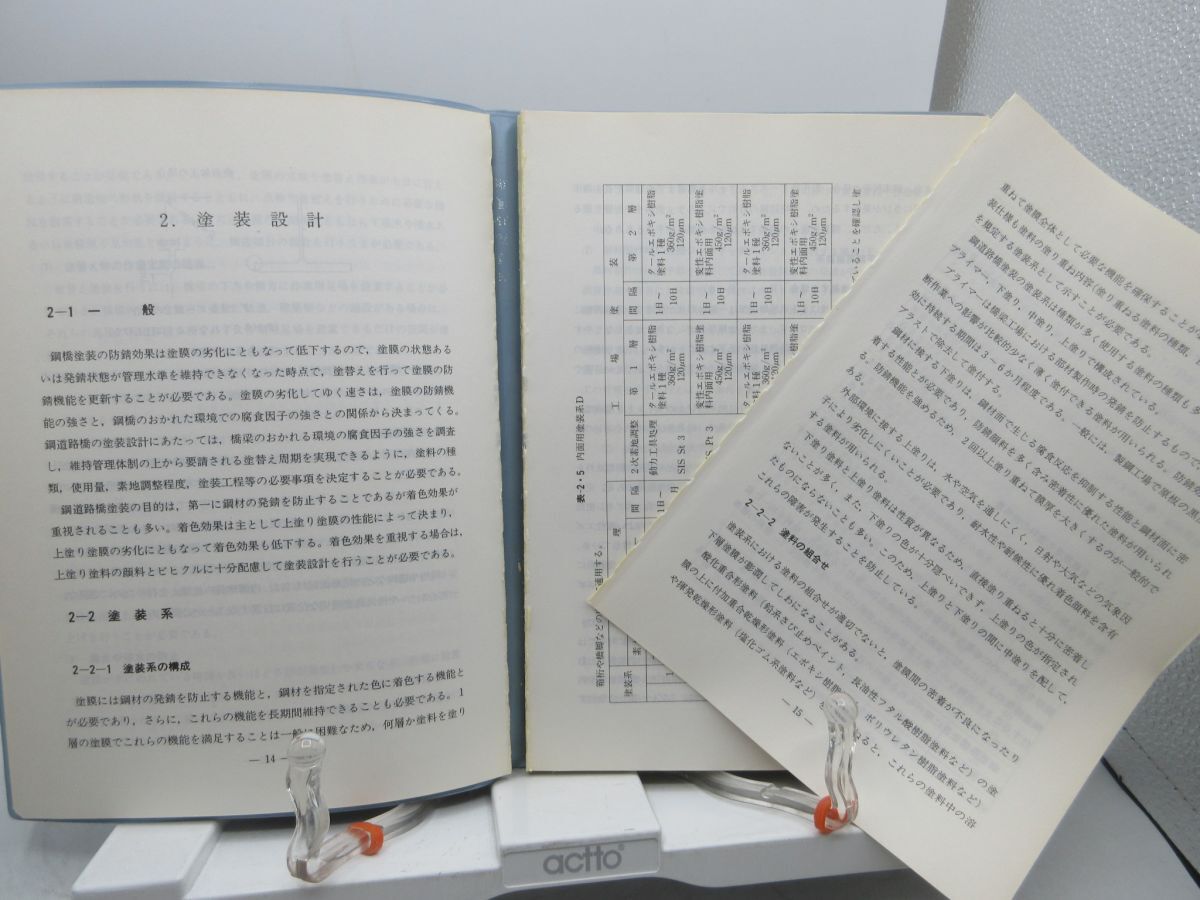 2. 塗装設計
2―1 一般
鋼橋塗装の防錆効果は塗膜の劣化にともなって低下するので，塗膜の状態ある
いは発錆状態が管理水準を維持できなくなった時点で，塗替えを行って塗膜の防
錆機能を更新することが必要である。塗膜の劣化してゆく速さは，塗膜の防錆機
能の強さと，鋼橋のおかれた環境での腐食因子の強さとの関係から決まってくる。
鋼道路橋の塗装設計にあたっては，橋梁のおかれる環境の腐食因子の強さを調査
し，維持管理体制の上から要請される塗替え周期を実現できるように，塗料の種
類，使用量，素地調整程度，塗装工程等の必要事項を決定することが必要である。
鋼道路橋塗装の目的は，第一に鋼材の発錆を防止することであるが着色効果が
重視されることも多い。着色効果は主として上塗り塗膜の性能によって決まり，
上塗り塗膜の劣化にともなって着色効果も低下する。着色効果を重視する場合は，
上塗り塗料の顔料とビヒクルに十分配慮して塗装設計を行うことが必要である。
2―2 塗装系
2―2―1 塗装系の構成
塗膜には鋼材の発錆を防止する機能と，鋼材を指定された色に着色する機能と
が必要であり，さらに，これらの機能を長期間維持できることも必要である。1
層の塗膜でこれらの機能を満足することは一般に困難なため，何層か塗料を塗り
― 14 ―
表-2・5 内面用塗装系D
塗装系
工場塗装
2次素地調整
第1層
間隔
第2層
動力工具処理
SIS St 3
タールエポキシ樹脂
塗料1種
360g/m²
120μm
1日～
10日
タールエポキシ樹脂
塗料1種
360g/m²
120μm
変性エポキシ樹脂塗
料内面用
450g/m²
120μm
変性エポキシ樹脂塗
料内面用
450g/m²
120μm
タールエポキシ樹脂
塗料1種
360g/m²
120μm
1日～
10日
タールエポキシ樹脂
塗料1種
360g/m²
120μm
変性エポキシ樹脂塗
変性エポキシ樹脂塗
料内面用
450g/m²
120μm
ていることを確認し塗
重ねて塗膜全体として必要な機能を確保すること
装仕様も塗料の塗り重ね内容(塗り重ねる塗料の種類，
を規定する塗装系として示すことが必要である。
鋼道路橋塗装の塗装系は種類が多く使用する塗料の種類も
プライマー，下塗り，中塗り，上塗りで構成されている。
プライマーは橋梁工場における部材製作時の発錆を防止するもので
断作業への影響が比較的少なく薄く塗付できる塗料が用いられる。防錆
効に持続する期間は3～6か月程度である。一般には，製鋼工場で鋼板の
ブラストで除去して塗付する。
鋼材に接する下塗りは，鋼材面で生じる腐食反応を抑制する性能と鋼材面に密
着する性能とが必要であり，防錆顔料を多く含み密着性に優れた塗料が用いられ
る。防錆機能を強めるため，2回以上塗り重ねて膜厚を大きくするのが一般的で
外部環境に接する上塗りは，水や空気を通しにくく，日射や大気などの気象因
子により劣化しにくいことが必要であり，耐水性や耐候性に優れ着色顔料を含有
する塗料が用いられる。
下塗り塗料と上塗り塗料は性質が異なるため，直接塗り重ねると十分に密着し
ないことが多く，また，下塗りの色が十分隠ぺいできず，上塗りの色が指定され
たものにならないことも多い。このため，上塗りと下塗りの間に中塗りを配して，
これらの障害が発生することを防止している。
2―2―2 塗料の組合せ
塗装系における塗料の組合せが適切でないと，塗膜間の密着が不良になったり
下層塗膜が膨潤してしわになることがある。
酸化重合形塗料(鉛系さび止めペイント，長油性フタル酸樹脂塗料など)の塗
膜の上に付加重合乾燥形塗料(エポキシ樹脂 ポリウレタン樹脂塗料など)
や揮発乾燥形塗料(塩化ゴム系塗料など)を ねると，これらの塗料中の溶
― 15 ―
actto